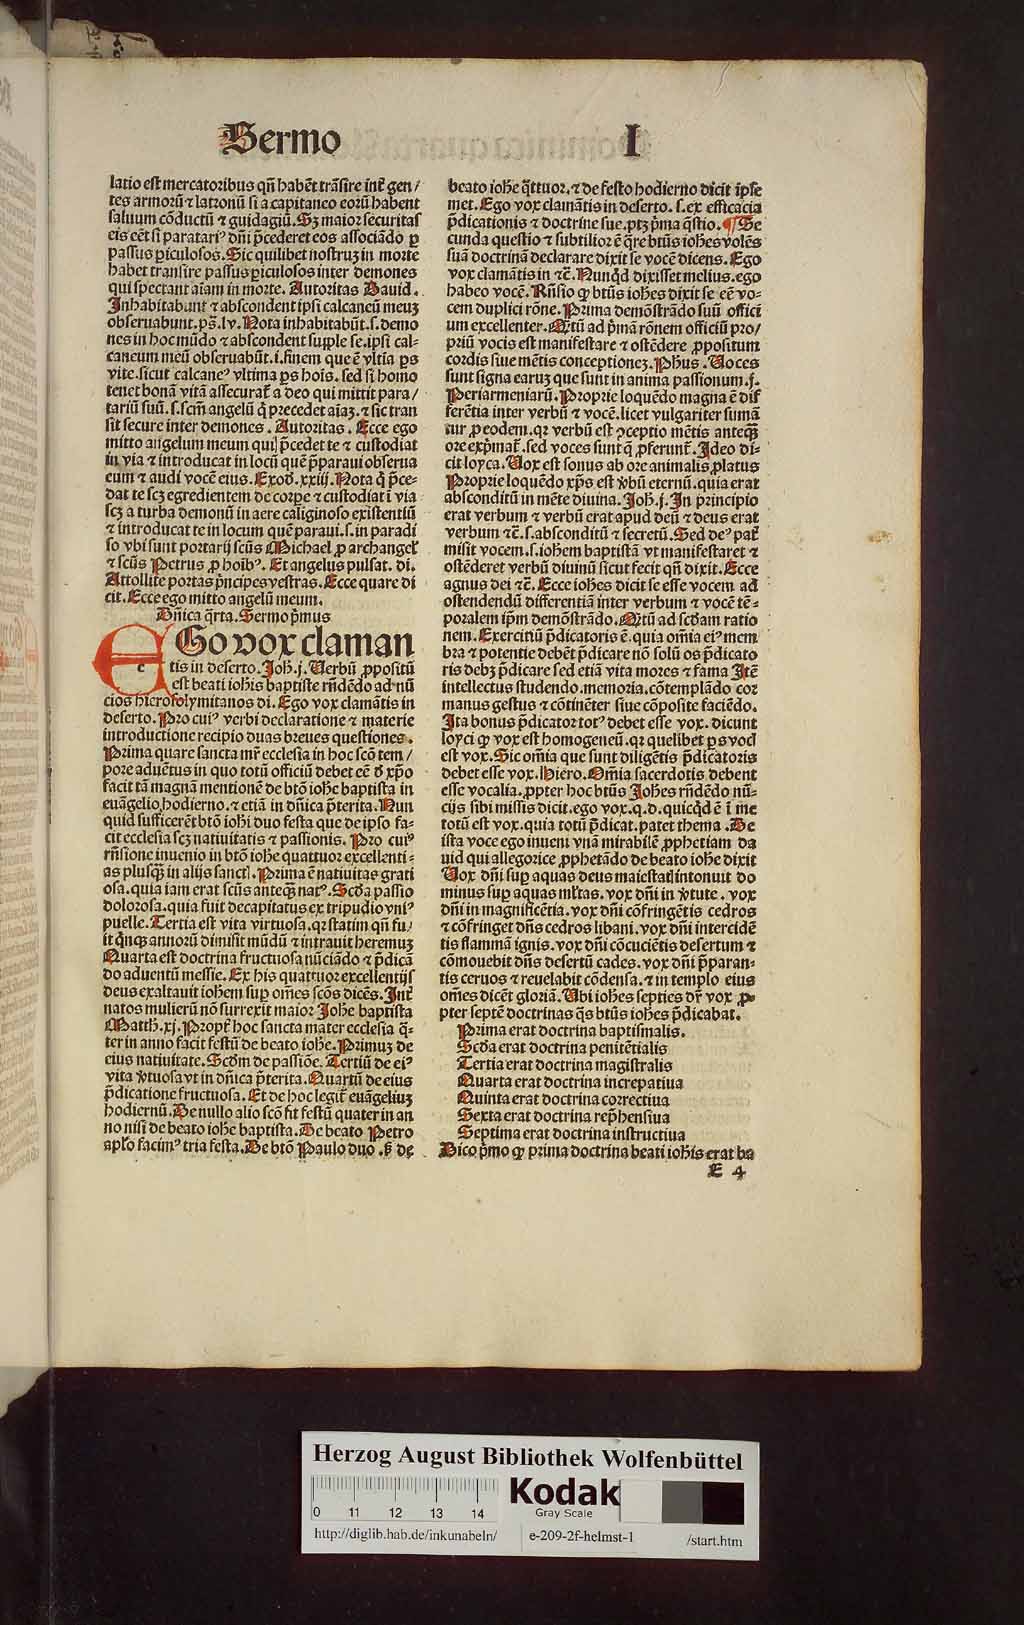 Sermo I
latio est mercatoribus qñ habēt trāsire int̃ gen/
tes armorũ ⁊ latronũ si a capitaneo eorũ habent
saluum cōductũ ⁊ guidagiũ. Sꝫ maior securitas
eis eēt si paratariꝰ dñi p̃cederet eos associādo ꝑ
passus ꝑiculosos. Sic quilibet nostruꝫ in morte
habet transire passus ꝑiculosos inter demones
qui spectant aīam in morte. Autoritas Dauid.
Inhabitabunt ⁊ abscondent ipsi calcaneũ meuꝫ
obseruabunt. ps̄. lv. Nota inhabitabũt. s. demo
nes in hoc mũdo ⁊ abscondent supple se. ipsi cal-
caneum meũ obseruabũt. i. finem que ē vltīa ꝑs
vite. sicut calcaneꝰ vltima ꝑs hoīs. sed si homo
tenet bonā vitā assecurat̃ a deo qui mittit para/
tariũ suũ. s. scm̄ angelũ q̃ precedet aīaꝫ. ⁊ sic tran
sit secure inter demones. Autoritas. Ecce ego
mitto angelum meum qui p̃cedet te ⁊ custodiat
in via ⁊ introducat in locũ quē p̃paraui obserua
eum ⁊ audi vocē eius. Exod. xxiij. Nota q̃ p̃ce-
dat te scꝫ egredientem de corpe ⁊ custodiat ī via
scꝫ a turba demonũ in aere caliginoso existentiũ
⁊ introducat te in locum quē paraui. s. in paradi
so vbi sunt portarij scũs Michael ꝓ archangel̕
⁊ scũs Petrus ꝓ hoībꝰ. Et angelus pulsat. di.
Attollite portas p̃ncipes vestras. Ecce quare di
cit. Ecce ego mitto angelũ meum.
Dñica q̃rta. Sermo p̃mus
EGo vox claman
tis in deserto. Joh̃. j. Uerbũ ꝓpositũ
est beati ioh̃is baptiste rñdēdo ad nũ
cios hierosolymitanos di. Ego vox clamātis in
deserto. Pro cuiꝰ verbi declaratione ⁊ materie
introductione recipio duas breues questiones.
Prima quare sancta mr̃ ecclesia in hoc scō tem/
pore aduētus in quo totũ officiũ debet eē d̕ xp̄o
facit tā magnā mentionē de btō ioh̃e baptista in
euāgelio hodierno. ⁊ etiā in dñica p̃terita. Nun
quid sufficerēt btō ioh̃i duo festa que de ipso fa-
cit ecclesia scꝫ natiuitatis ⁊ passionis. Pro cuiꝰ
rñsione inuenio in btō ioh̃e quattuor excellenti-
as plusq̃ꝫ in alijs sanctꝭ. Prima ē natiuitas grati
osa. quia iam erat scũs anteq̃ꝫ natꝰ. Scd̕a passio
dolorosa. quia fuit decapitatus ex tripudio vniꝰ
puelle. Tertia est vita virtuosa. qꝛ statim qñ fu/
it q̃nqꝫ annorũ dimisit mũdũ ⁊ intrauit heremuꝫ
Quarta est doctrina fructuosa nũciādo ⁊ p̃dicā
do aduentũ messie. Ex his quattuor excellentijs
deus exaltauit ioh̃em suꝑ om̄es scōs dicēs. Int̃
natos mulierũ nō surrexit maior Joh̃e baptista
Matth̃. xj. Propt̃ hoc sancta mater ecclesia q̃-
ter in anno facit festũ de beato ioh̃e. Primuꝫ de
eius natiuitate. Scd̕m de passiōe. Tertiũ de eiꝰ
vita v̕tuosa vt in dñica p̃terita. Quartũ de eius
p̃dicatione fructuosa. Et de hoc legit̃ euāgeliuꝫ
hodiernũ. De nullo alio scō fit festũ quater in an
no nisi de beato ioh̃e baptista. De beato Petro
apl̕o facimꝰ tria festa. De btō Paulo duo. ꝫ de
beato ioh̃e q̃ttuor. ⁊ de festo hodierno dicit īpse
met. Ego vox clamātis in deserto. s. ex efficacia
p̃dicationis ⁊ doctrine sue. ptꝫ p̃ma q̃stio. ¶ Se
cunda questio ⁊ subtilior ē q̃re btũs ioh̃es volēs
suā doctrinā declarare dixit se vocē dicens. Ego
vox clamātis in ⁊c̄. Nunq̃d dixisset melius. ego
habeo vocē. Rñsio ꝙ btũs ioh̃es dixit se eē vo-
cem duplici rōne. Prima demōstrādo suũ offici
um excellenter. Q̃tũ ad p̃mā rōnem officiũ pro/
priũ vocis est manifestare ⁊ ostēdere ꝓpositum
cordis siue mētis conceptioneꝫ. Ph̃us. Uoces
sunt signa earuꝫ que sunt in anima passionum. j.
Periarmeniarũ. Proprie loquēdo magna ē dif
ferētia inter verbũ ⁊ vocē. licet vulgariter sumā
tur ꝓ eodem. qꝛ verbũ est ꝯceptio mētis anteq̃ꝫ
ore exp̃mat̃. sed voces sunt q̃ ꝓferunt̃. Ideo di-
cit loyca. Uox est sonus ab ore animalis ꝓlatus
Proprie loquēdo xp̄s est v̕bũ eternũ. quia erat
absconditũ in mēte diuina. Joh̃. j. In principio
erat verbum ⁊ verbũ erat apud deũ ⁊ deus erat
verbum ⁊c̄. s. absconditũ ⁊ secretũ. Sed deꝰ pat̃
misit vocem. s. ioh̃em baptistā vt manifestaret ⁊
ostēderet verbũ diuinũ sicut fecit qñ dixit. Ecce
agnus dei ⁊c̄. Ecce ioh̃es dicit se esse vocem ad
ostendendũ differentiā inter verbum ⁊ vocē tē-
poralem ip̄m demōstrādo. Q̃tũ ad scd̕am ratio
nem. Exercitiũ p̃dicatoris ē. quia om̄ia eiꝰ mem
bra ⁊ potentie debēt p̃dicare nō solũ os p̃dicato
ris debꝫ p̃dicare sed etiā vita mores ⁊ fama Itē
intellectus studendo. memoria. cōtemplādo cor
manus gestus ⁊ cōtinēter siue cōposite faciēdo.
Ita bonus p̃dicator totꝰ debet esse vox. dicunt
loyci ꝙ vox est homogeneũ. qꝛ quelibet ꝑs vocꝭ
est vox. Sic om̄ia que sunt diligētis p̃dicatoris
debet esse vox. Hiero. Om̄ia sacerdotis debent
esse vocalia. ꝓpter hoc btũs Joh̃es rñdēdo nũ-
cijs sibi missis dicit. ego vox. q. d. quicq̃d ē ī me
totũ est vox. quia totũ p̃dicat. patet thema. De
ista voce ego inueni vnā mirabilē ꝓphetiam da
uid qui allegorice ꝓphetādo de beato ioh̃e dixit
Uox dñi suꝑ aquas deus maiestatꝭ intonuit do
minus suꝑ aquas ml̕tas. vox dñi in v̕tute. vox
dñi in magnificētia. vox dñi cōfringētis cedros
⁊ cōfringet dñs cedros libani. vox dñi intercidē
tis flammā ignis. vox dñi cōcuciētis desertum ⁊
cōmouebit dñs desertũ cades. vox dñi p̃paran-
tis ceruos ⁊ reuelabit cōdensa. ⁊ in templo eius
om̄es dicēt gloriā. Ubi ioh̃es septies dr̃ vox ꝓ-
pter septē doctrinas q̃s btũs ioh̃es p̃dicabat.
Prima erat doctrina baptismalis.
Scd̕a erat doctrina penitētialis
Tertia erat doctrina magistralis
Quarta erat doctrina increpatiua
Quinta erat doctrina correctiua
Sexta erat doctrina rep̃hensiua
Septima erat doctrina instructiua
Dico p̃mo ꝙ prima doctrina beati ioh̃is erat ba
E 4
Herzog August Bibliothek Wolfenbüttel
0 11 12 13 14
Kodak
Gray Scale
http://diglib.hab.de/inkunabeln/ e-209-2f-helmst-1 /start.htm